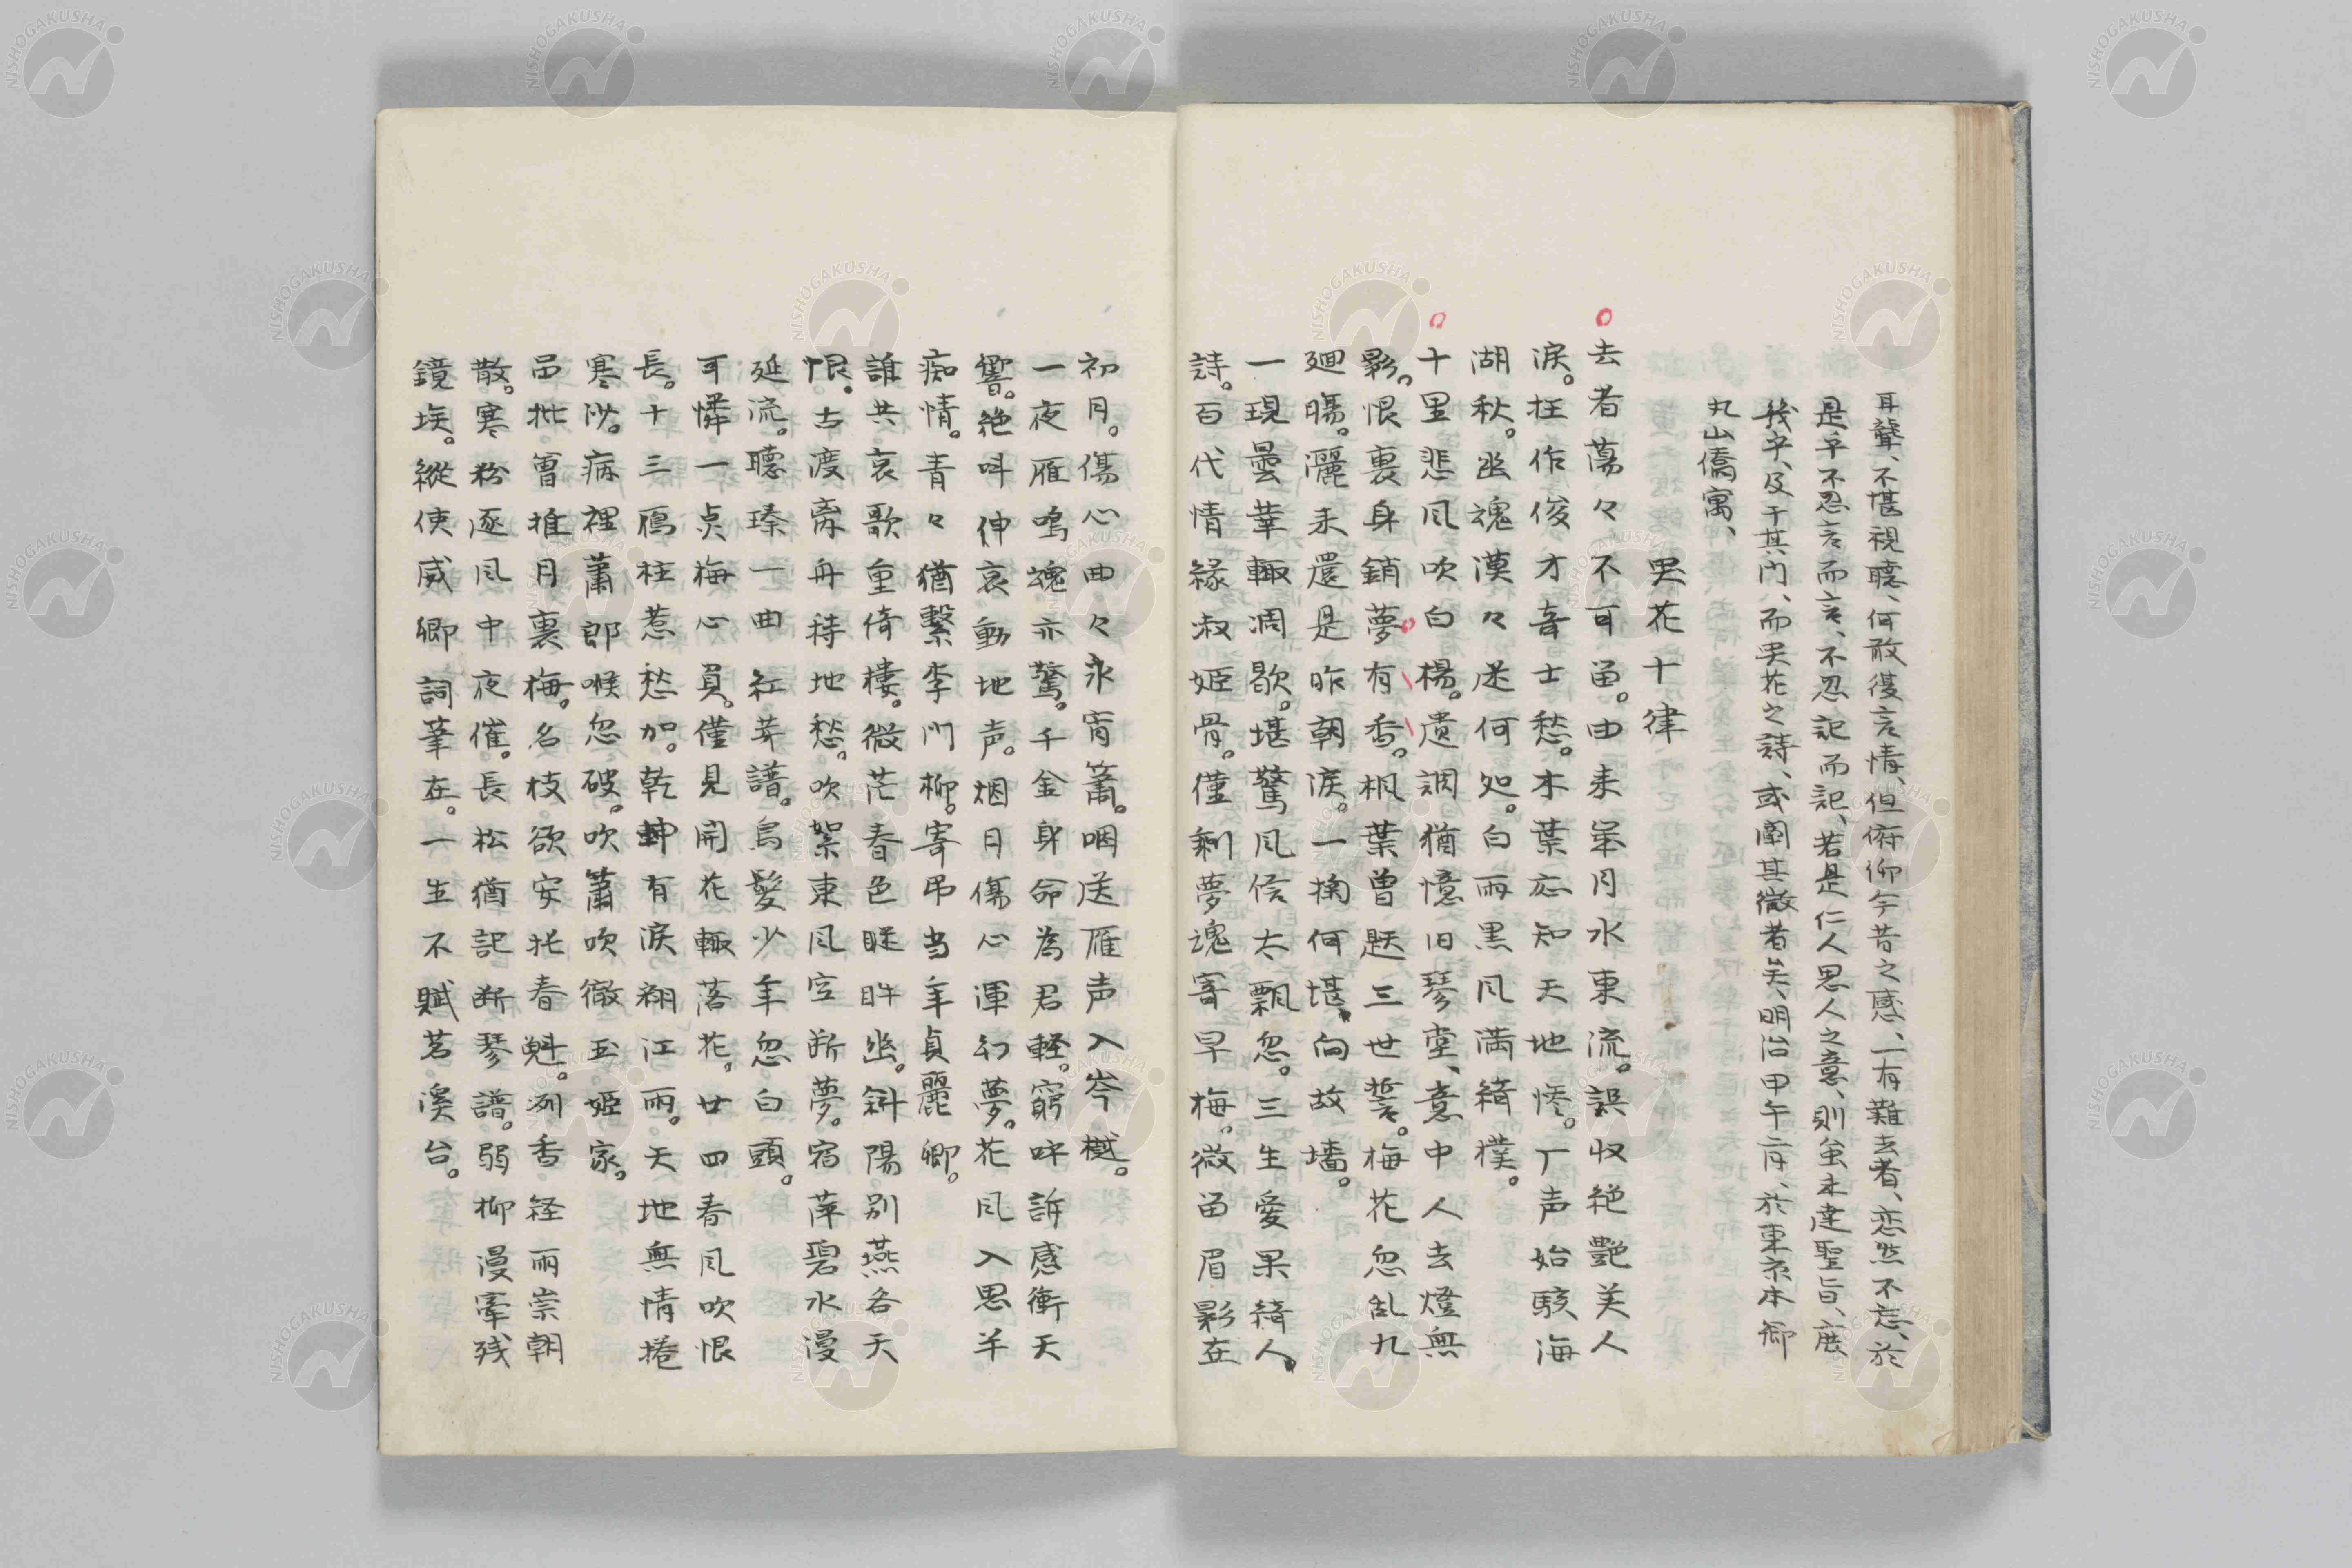 耳聾、不堪視聴、何敢復言情、但俯仰今昔之感、一有難去者、恋然不忘、於
是乎不忍言而言、不忍記而記、若是仁人思人之意、則虽未達聖旨、庶
我乎、及于其門、而哭花之詩、或闡其微者矣、明治甲午二月、於東京本郷
丸山僑寓、
哭花十律
去者蕩々不可畄。由来年月水東流。誤収絶艶美人
涙。枉作俊才奇士愁。木葉応知天地悸。丁声始駭海
湖秋。幽魂漠々迷何処。白雨黒風満綺楼。
十里悲風吹白楊。遗調猶憶旧琴堂、意中人去燈無
影。恨裏身銷夢有香。楓葉曽題三世誓。梅花忽乱九
廻腸。灑来還是昨朝涙。一掬何堪向故墻。
一現曇華輙凋歇。堪驚風信太飄忽。三生愛果綺人
詩。百代情緣淑姫骨。僅剰夢魂寄早梅。微畄眉影在
初月。傷心曲々永宵簫。咽送雁声入岑樾。
一夜雁鳴魂亦驚。千金身命為君軽。窮呼訴感衝天
響。絶叫伸哀動地声。烟月傷心渾幻夢。花風入思半
痴情。青々猶繋李門柳。寄弔当年貞麗卿。
誰共哀歌重倚楼。微茫春色眶眸幽。斜陽別燕各天
恨。古渡离舟特地愁。吹絮東風空断夢。宿萍碧水漫
延流。聴瑧一曲紅芽譜。烏髪少年忽白頭。
可憐一点梅心負。僅見開花輙落花。廿四春風吹恨
長。十三雁柱惹愁加。乾坤有涙翻江雨。天地無情捲
寒沙。病裡蕭郎喉忽破。吹簫吹徹玉姫家。
吊批曽推月裏梅。名枝欲安托春魁。冽香経雨崇朝
散。寒粉逐風中夜催。長松猶記断琴譜。弱柳漫牽残
鏡埃。縦使威卿詞筆在。一生不賦茗溪台。